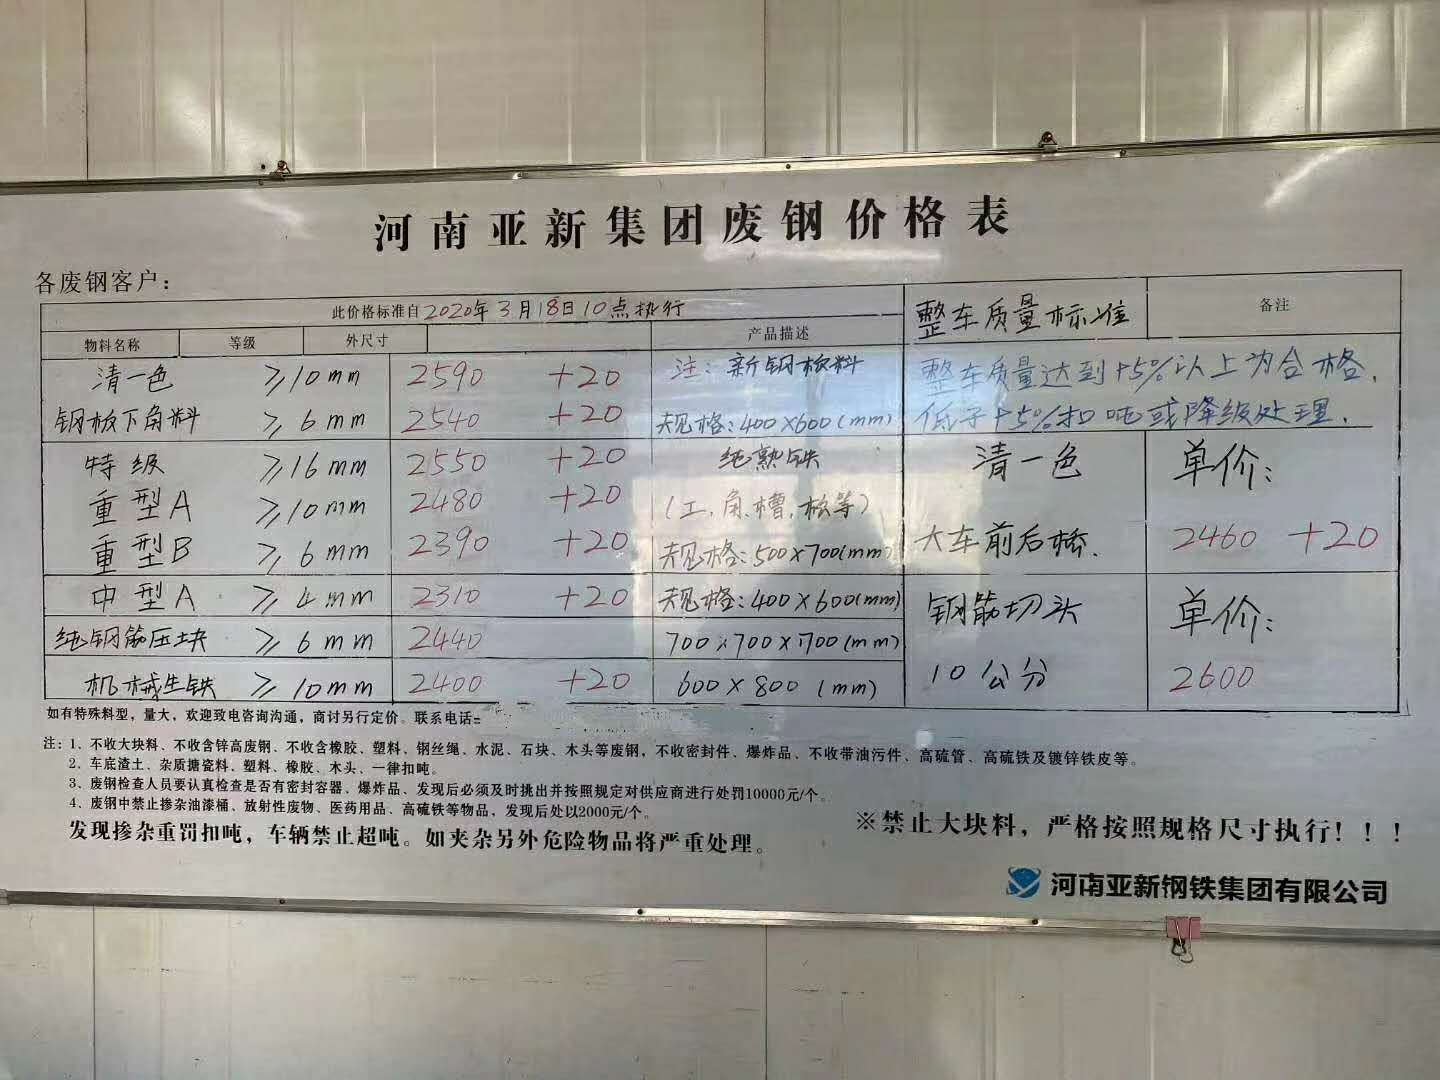 河南亚新集团废钢价格表
各废钢客户：
此价格标准自2020年3月18日10点执行
整车质量标准 备注
物料名称 等级 外尺寸 产品描述
清一色 ≥10mm 2590 +20 注：新钢板料
钢板下角料 ≥6mm 2540 +20 规格:400×600(mm)
整车质量达到95%以上为合格.
低于95%扣吨或降级处理.
特级 ≥16mm 2550 +20 纯熟铁
重型A ≥10mm 2480 +20 (工.角.槽.板等)
重型B ≥6mm 2390 +20 规格:500×700(mm)
清一色 单价:
大车前后桥. 2460 +20
中型A ≥4mm 2310 +20 规格:400×600(mm)
纯钢筋压块 ≥6mm 2440 700×700×700(mm)
机械生铁 ≥10mm 2400 +20 600×800 (mm)
钢筋切头 单价:
10公分 2600
如有特殊料型，量大，欢迎致电咨询沟通，商讨另行定价。联系电话:
注：1、不收大块料、不收含锌高废钢、不收含橡胶、塑料、钢丝绳、水泥、石块、木头等废钢，不收密封件、爆炸品、不收带油污件、高硫管、高硫铁及镀锌铁皮等。
2、车底渣土、杂质搪瓷料、塑料、橡胶、木头、一律扣吨。
3、废钢检查人员要认真检查是否有密封容器、爆炸品、发现后必须及时挑出并按照规定对供应商进行处罚10000元/个。
4、废钢中禁止掺杂油漆桶、放射性废物、医药用品、高硫铁等物品，发现后处以2000元/个。
发现掺杂重罚扣吨，车辆禁止超吨。如夹杂另外危险物品将严重处理。
※禁止大块料，严格按照规格尺寸执行！！！
河南亚新钢铁集团有限公司